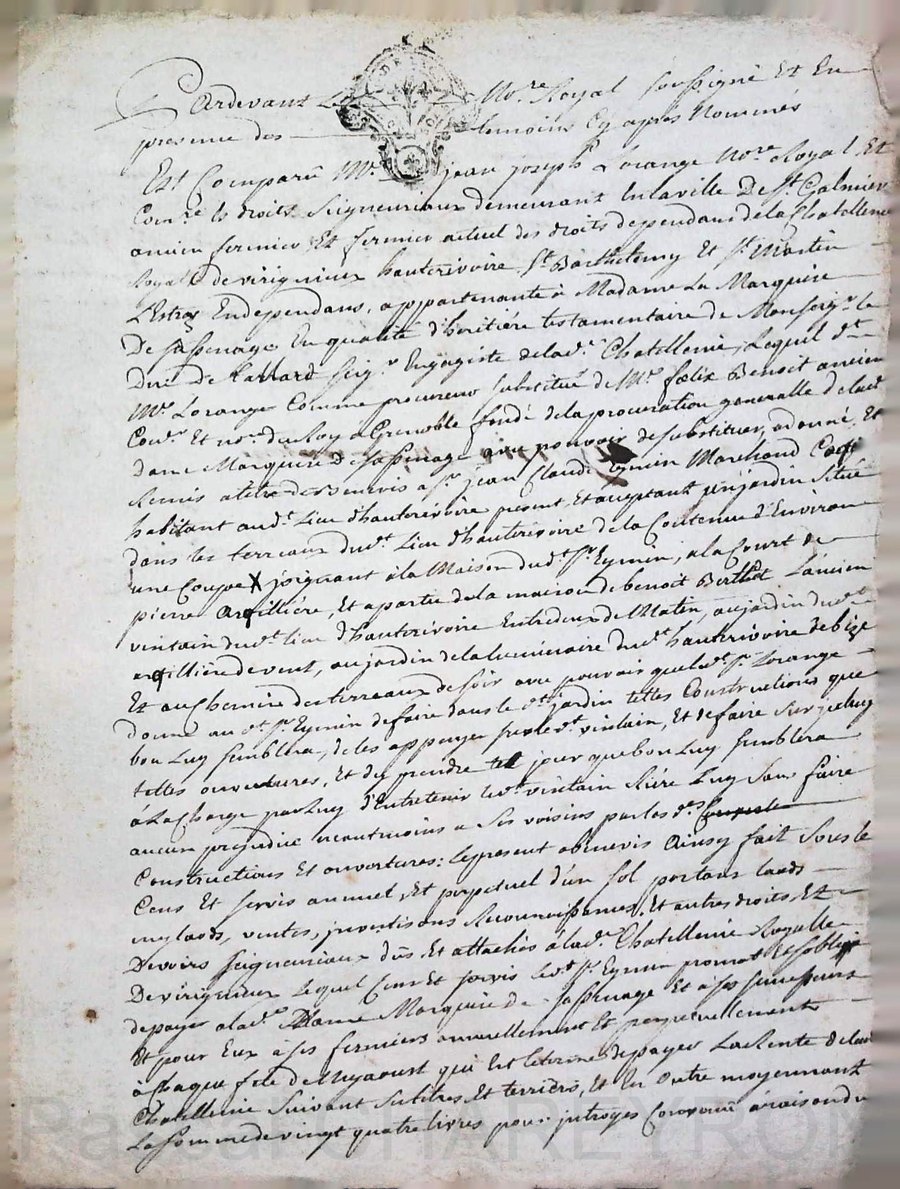 Pardevant Le No.re Royal soussigné Et En
presence des temoins Cy apres Nommés
Est Comparû M.e jean joseph Lorange No.re Royal Et
Com.re Es droits Seigneuriaux demeurant En la ville De S.t Galmier
ancien fermier Et fermier actuel des droits dependans de la Chatellenie
Royalle de virignieux hauterivoire S.t Barthelemy Et S.t Martin
L'Estras En dependans, appartenante à Madame La Marquise
De Sassenage En qualité d'heritiére testamentaire de Monseig.r le
Duc de tallard Seig.r Engagiste de lad.e Chatellenie, Lequel d.t
M.e Lorange Comme procureur substitué de M.e fœlix Benoit ancien
Con.er Et no.re du Roy a Grenoble fondé de la procuration generalle de lad.e
dame Marquise de Sassenage avec pouvoir de substituer, a donné, Et
Remis a titre de Benevis a S.r jean Claude Eymin Marchand
habitant aud.t Lieu d'hauterivoire present, Et acceptant un jardin Situé
dans les terreaux dud.t Lieu d'hauterivoire de la Contenue d'Environ
une Coupe X joignant à la Maison dud.t S.r Eymin, a la Court de
pierre Arcillière, Et a partie de la maison de benoit Berthet L'ancien
vintain dud.t lieu d'hauterivoire Entredeux de Matin, au jardin dud.t
arcillière de vent, au jardin de la luminaire dud.t hauterivoire de bize
Et au Chemin des terreaux de soir avec pouvoir que led.t S.r Lorange
donne au d.t S.r Eymin de faire dans le d.t jardin telles Constructions que
bon Luy semblera, de les appuyer sur led.t vintain, Et de faire sur jceluy
telles ouvertures, Et d'y prendre tel jour que bon Luy semblera
à La Charge par Luy d'Entretenir led.t vintain Riére Luy sans faire
aucun prejudice neantmoins a ses voisins par les d.es
Constructions Et ouvertures: le present abenevis Ainsy fait sous le
Cens Et servis annuel, Et perpetuel d'un sol portans laods
mylaods, ventes, jnvestisons Reconnoissances, Et autres droits, Et
Devoirs seigneuriaux dûs, Et attachés à lad.e Chatellenie Royalle
De virignieux Lequel Cens et servis led.t S.r Eymin promet Et s'oblige
de payer a lad.e Dame Marquise de Sassenage Et à ses successeurs
Et pour Eux à ses fermiers annuellement Et perpetuellement
à Chaque fete de Myaoust qui Est le terme de payer La Rente de lad.e
Chatellenie suivant ses titres, Et terriers, Et En Outre moyennant
La somme de vingt quatre livres pour jntroges Convenû à raison du